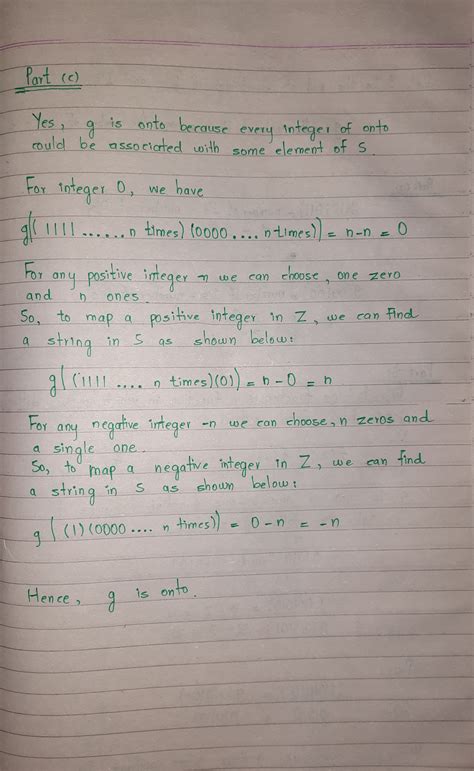 Part (c)
Yes, g is onto because every integer of onto
could be associated with some element of S.
For integer 0, we have
g((1111......n times)(0000....n-times)) = n-n = 0
For any positive integer n we can choose, one zero
and n ones.
So, to map a positive integer in Z, we can find
a string in S as shown below:
g((1111 .... n times)(01)) = n-0 = n
For any negative integer -n we can choose, n zeros and
a single one.
So, to map a negative integer in Z, we can find
a string in S as shown below:
g((1)(0000.... n times)) = 0-n = -n
Hence, g is onto.